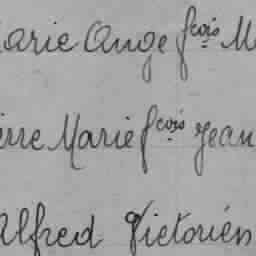 Marie Ange fçois M
ierre Marie fçois Jean
Alfred Victorién